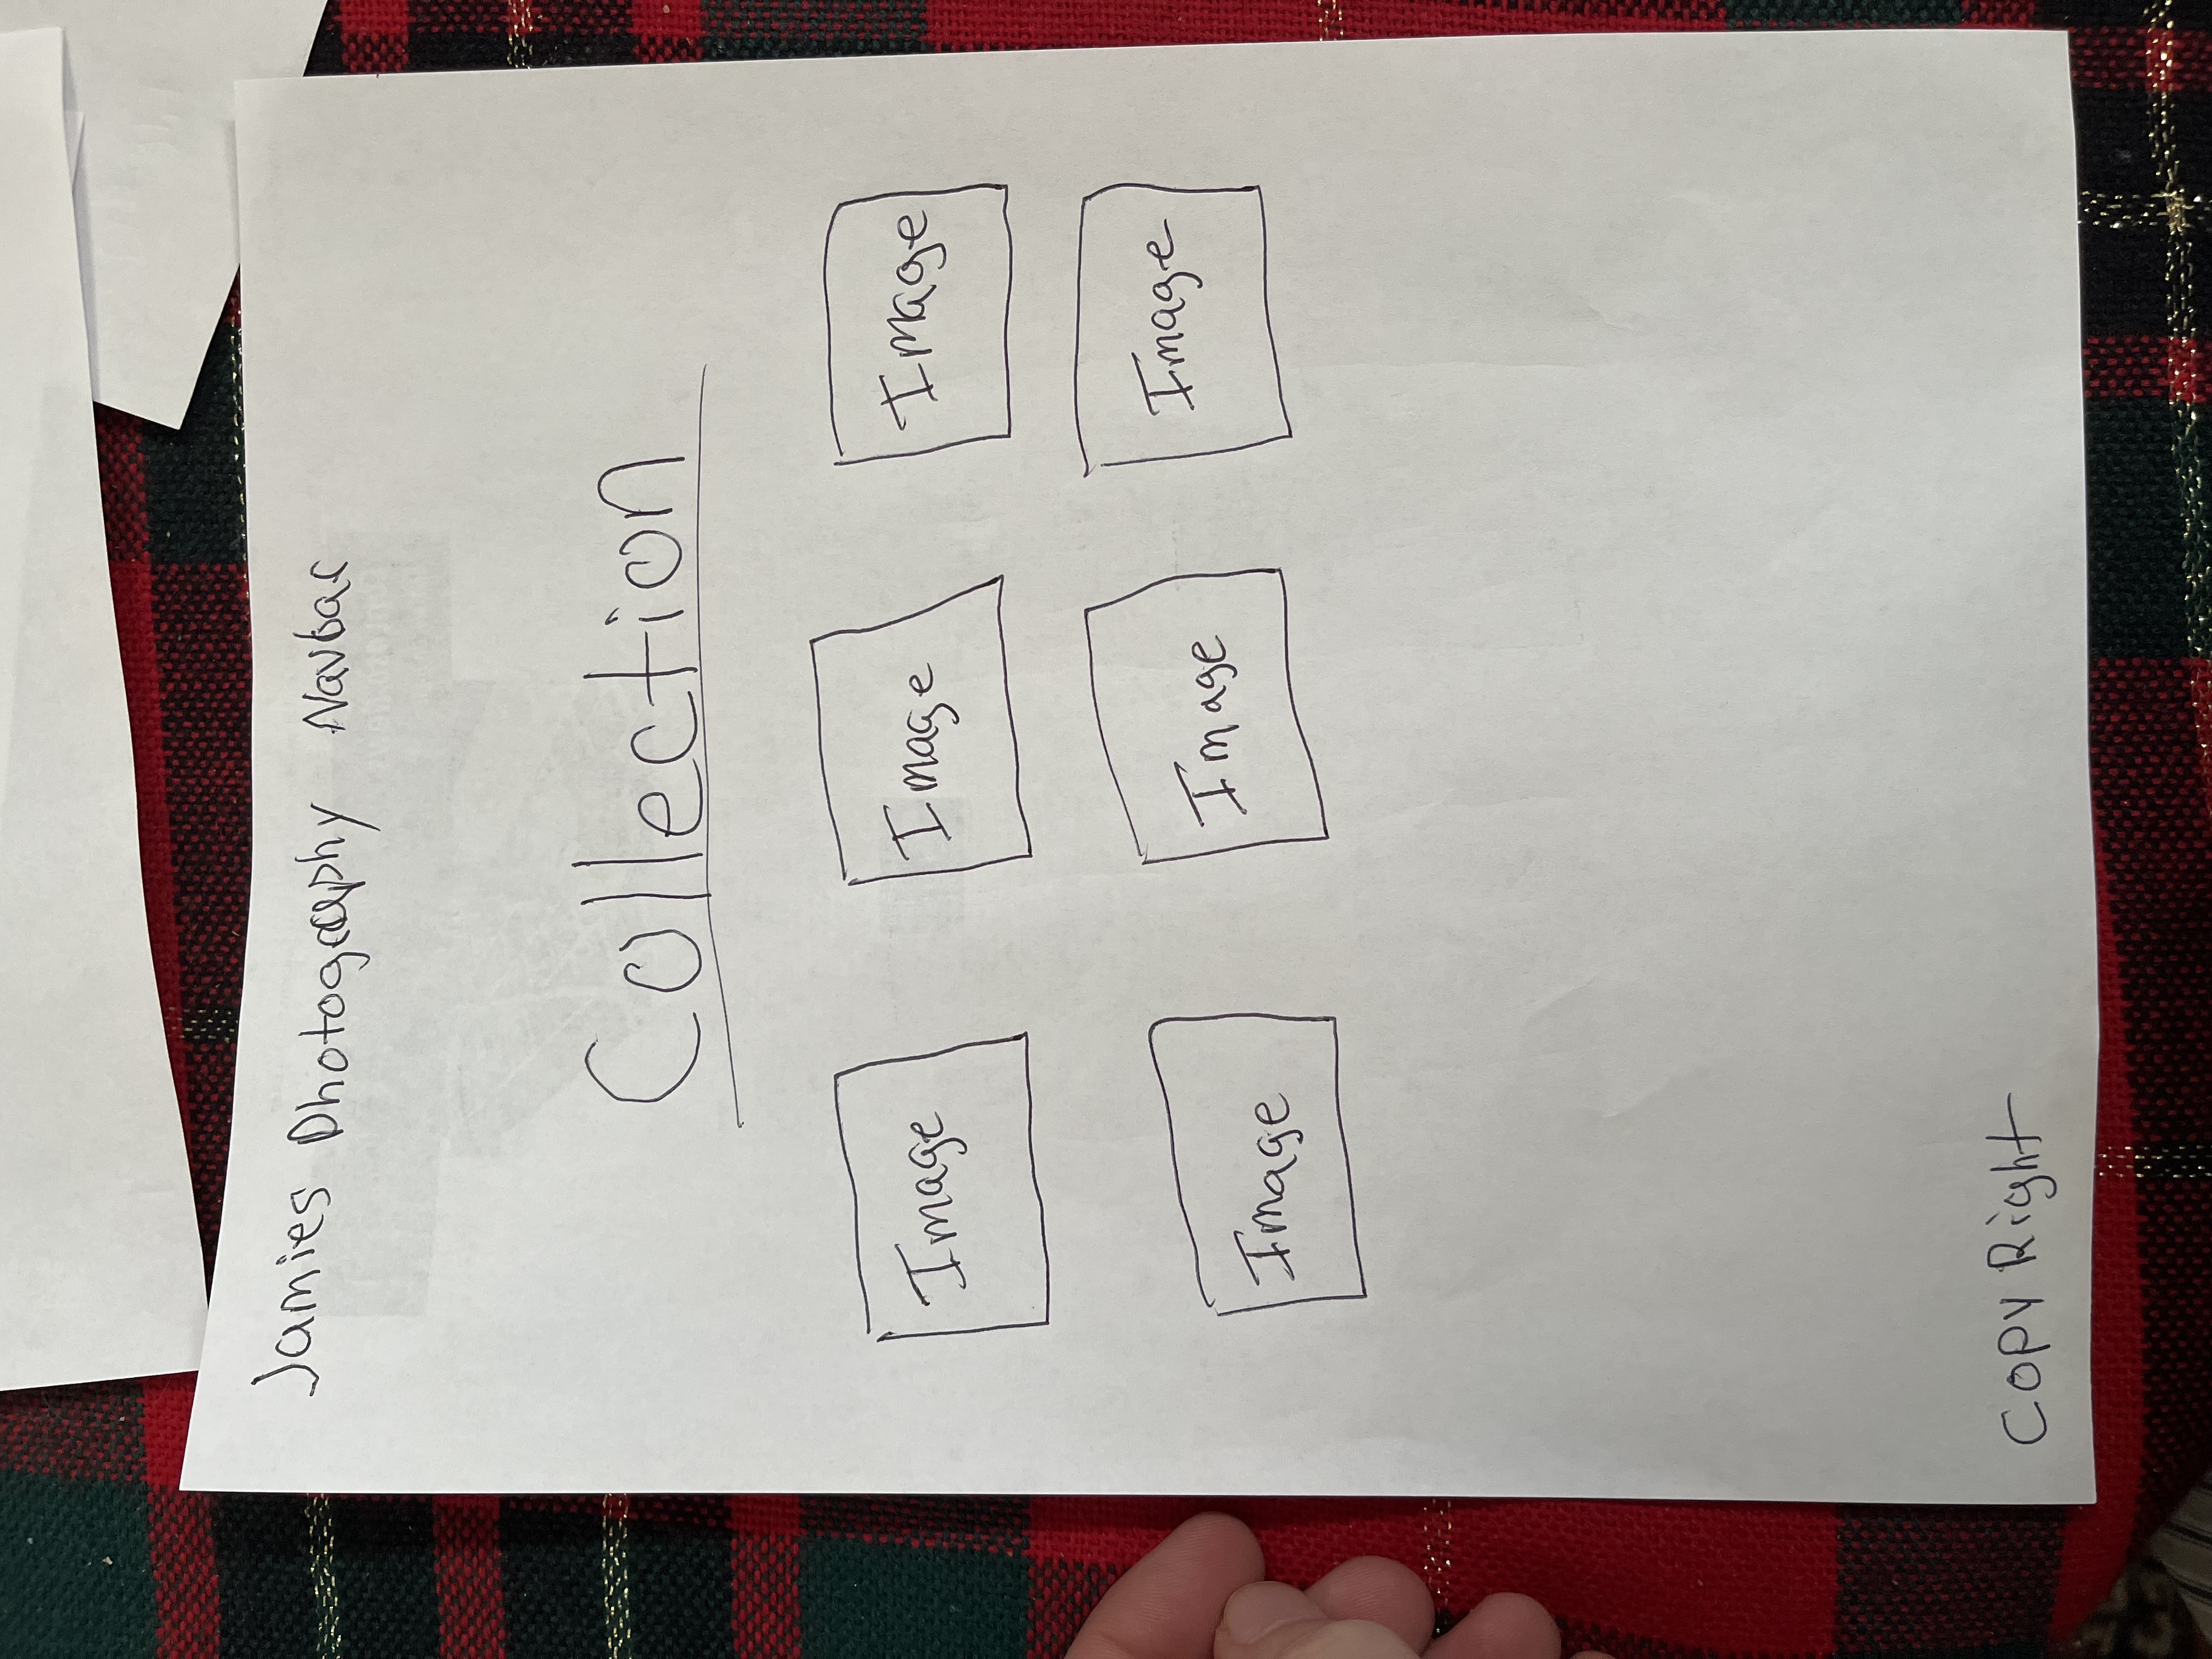 Jamies Photography Navbar
Collection
Image Image Image
Image Image Image
Copy Right